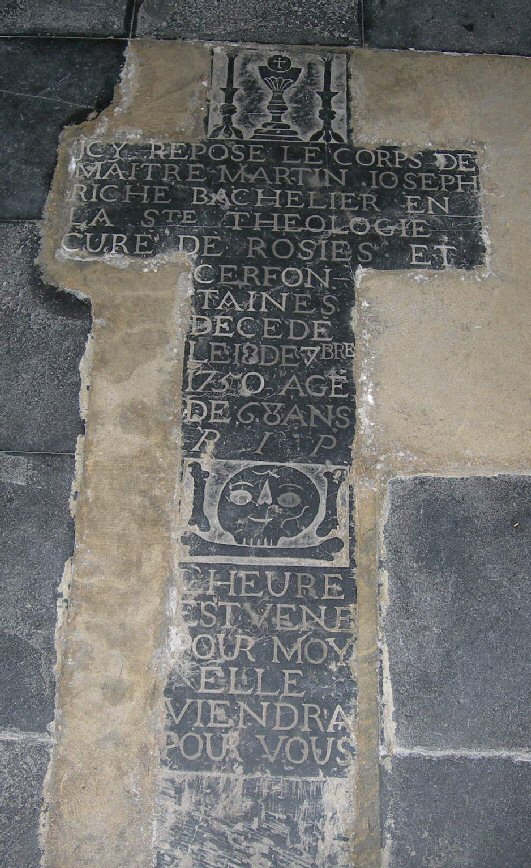 ICY REPOSE LE CORPS DE
MAITRE MARTIN IOSEPH
RICHE BACHELIER EN
LA STE THEOLOGIE
CURE DE ROSIES ET
CERFON
TAINES
DECEDE
LE 18 DE 7BRE
1750 AGE
DE 68 ANS
R I P
L HEURE
EST VENE
POUR MOY
ELLE
VIENDRA
POUR VOUS